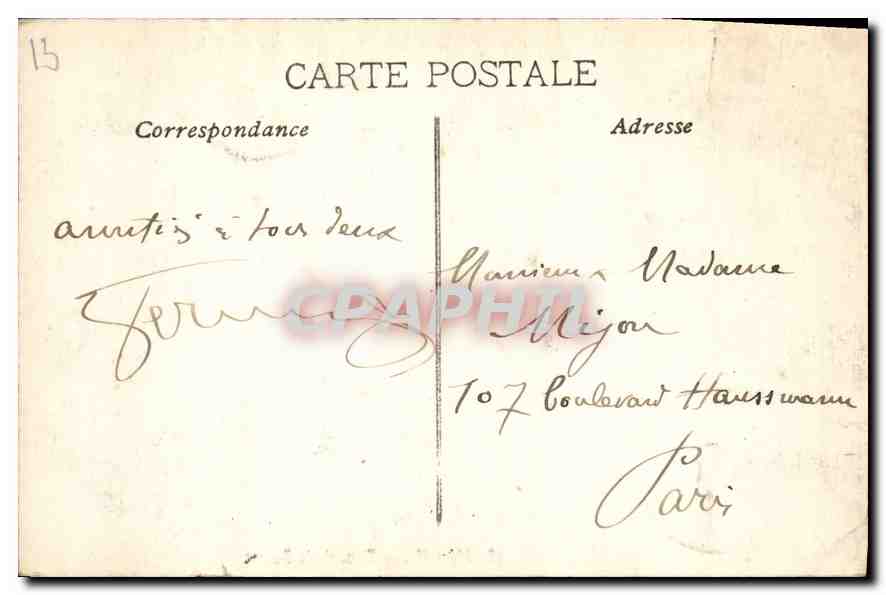 13
CARTE POSTALE
Correspondance
Adresse
à tous deux
Monsieur & Madame
Mijon
107 boulevard Haussmann
Paris
CPAPHIL